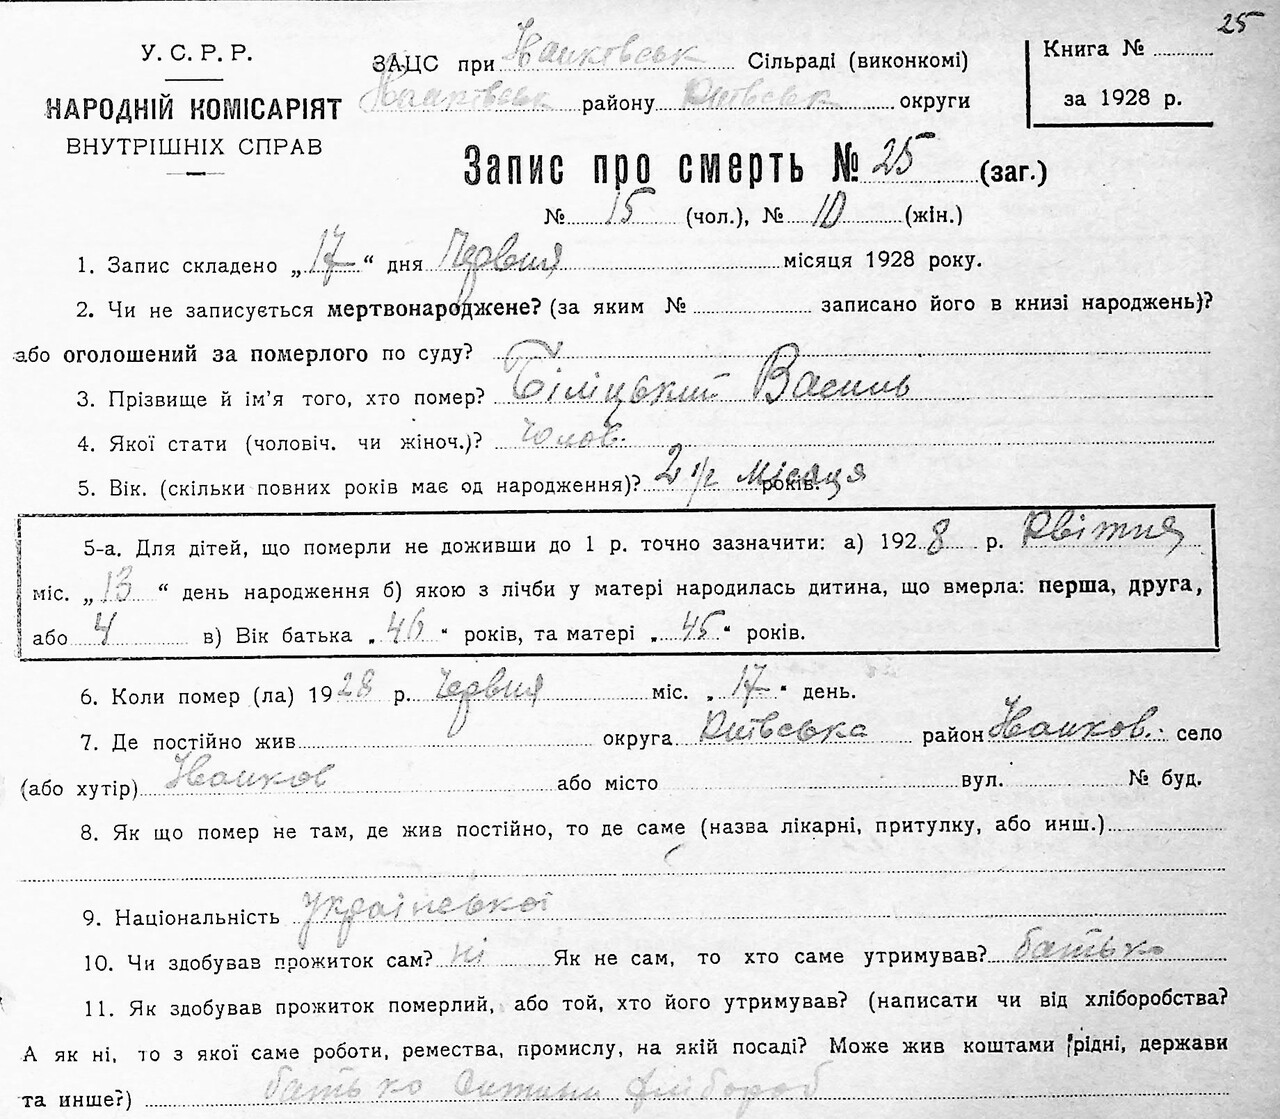 25
У. С. Р. Р.
НАРОДНІЙ КОМІСАРІЯТ
ВНУТРІШНІХ СПРАВ
ЗАЦС при Іванковськ Сільраді (виконкомі)
Іванківськ району Київськ округи
Книга №
за 1928 р.
Запис про смерть № 25 (заг.)
№ 15 (чол.), № 10 (жін.)
1. Запис складено „17“ дня Червня місяця 1928 року.
2. Чи не записується мертвонароджене? (за яким № записано його в книзі народжень)?
або оголошений за померлого по суду?
3. Прізвище й ім'я того, хто помер? Біліцький Василь
4. Якої стати (чоловіч. чи жіноч.)? Чолов.
5. Вік. (скільки повних років має од народження)? 2 1/2 місяця років.
5-а. Для дітей, що померли не доживши до 1 р. точно зазначити: а) 1928 р. Квітня
міс. „13“ день народження б) якою з лічби у матері народилась дитина, що вмерла: перша, друга,
або 4 в) Вік батька „46“ років, та матері „45“ років.
6. Коли помер (ла) 1928 р. Червня міс. „17“ день.
7. Де постійно жив округа Київська район Іванков. село
(або хутір) Іванков або місто вул. № буд.
8. Як що помер не там, де жив постійно, то де саме (назва лікарні, притулку, або инш.)
9. Національність Української
10. Чи здобував прожиток сам? ні Як не сам, то хто саме утримував? батько
11. Як здобував прожиток померлий, або той, хто його утримував? (написати чи від хліборобства?
А як ні, то з якої саме роботи, ремества, промислу, на якій посаді? Може жив коштами рідні, держави
та инше?) батько дитини хлібороб